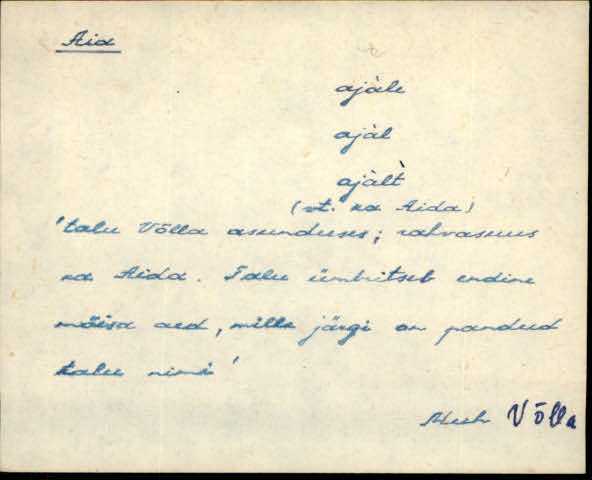 Aid
ajàle
ajàl
ajàlt̀
(vt. ka Aida)
'talu Võlla asunduses; rahvasuus
ka Aida. Talu ümbritseb endine
mõisa aed, mille järgi on pandud
talu nimi'
Muh Võlla